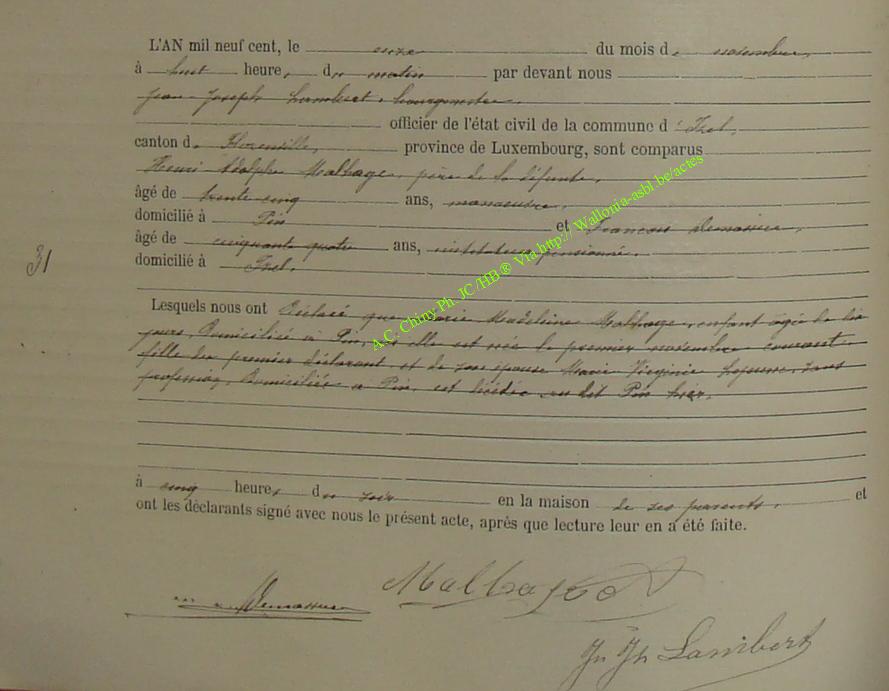 L'AN mil neuf cent, le onze du mois de novembre,
à huit heures du matin par devant nous
Jean-Joseph Lambert, bourgmestre,
officier de l'état civil de la commune d'Izel,
canton de Florenville, province de Luxembourg, sont comparus
Henri Adolphe Malhage, père de la défunte,
âgé de trente cinq ans, manoeuvre,
domicilié à Pin et François
âgé de cinquante quatre ans, instituteur pensionné,
domicilié à Izel.
31
Lesquels nous ont déclaré que Marie Madeleine Malhage, enfant âgée de dix
jours, domiciliée à Pin, elle est née le premier novembre courant
fille du premier déclarant et de son épouse Marie Virginie Lejeune, sans
profession, domiciliée à Pin, est décédée au dit Pin hier,
à cinq heures du soir en la maison de ses parents, et
ont les déclarants signé avec nous le présent acte, après que lecture leur en a été faite.
Malhage
Jn Jh Lambert
A.C. Chiny Ph. JC/HB® Via http:// Wallonia-asbl.be/actes